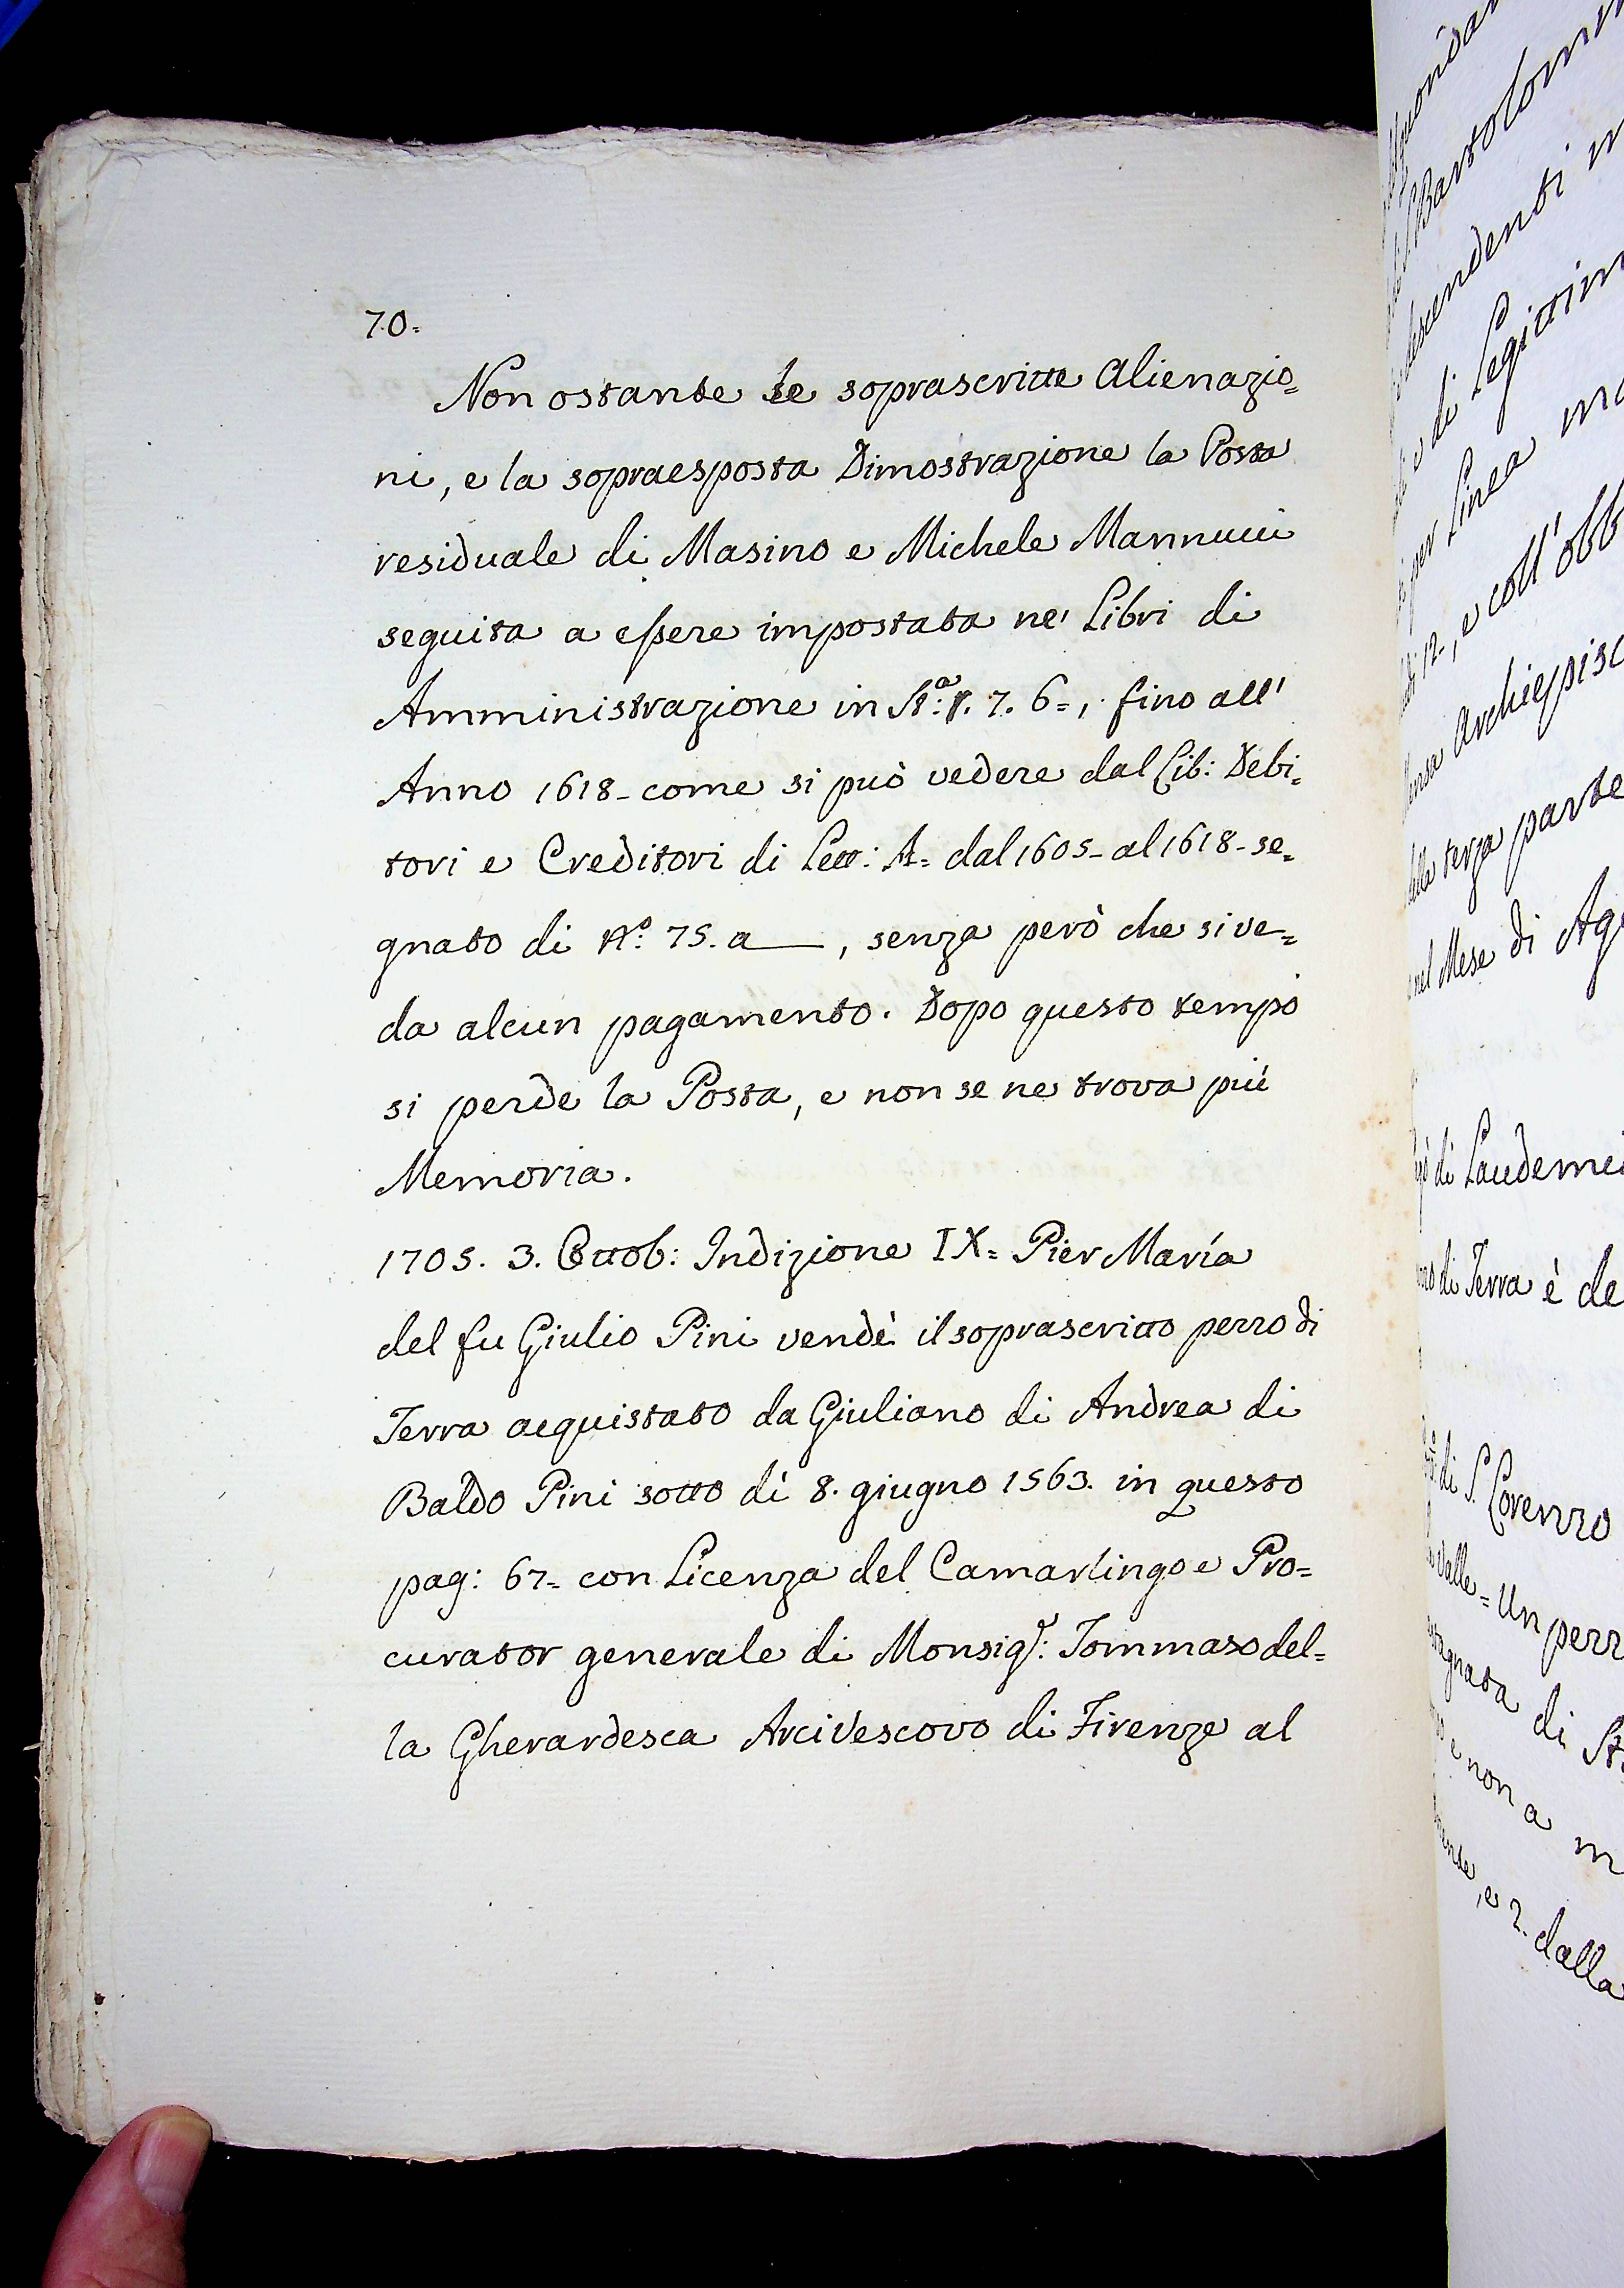 70=
Non ostante le soprascritte Alienazio=
ni, e la sopraesposta Dimostrazione la Posta
residuale di Masino e Michele Mannucci
seguita a essere impostata ne' Libri di
Amministrazione in St.ª 7. 6=, fino all'
Anno 1618- come si può vedere dal Lib: Debi=
tori e Creditori di Lett: A= dal 1605- al 1618- se=
gnato di Nº: 75. a —, senza però che si ve=
da alcun pagamento. Dopo questo tempo
si perde la Posta, e non se ne trova più
Memoria.
1705. 3. Ottob: Indizione IX= Pier María
del fu Giulio Pini vendè il soprascritto pezzo di
Terra acquistato da Giuliano di Andrea di
Baldo Pini sotto dì 8. giugno 1563. in questo
pag: 67= con Licenza del Camarlingo e Pro=
curator generale di Monsigr: Tommaso del=
la Gherardesca Arcivescovo di Firenze al
Bartolom
descendenti
di Legittim
per Linea
12-, e coll' obb
Archiepisc
terza parte
nel Mese di Ag
di Laudemi
di Terra è de
di S. Lorenzo
Valle= Un pezz
di
e non a m
, e 2. dalla